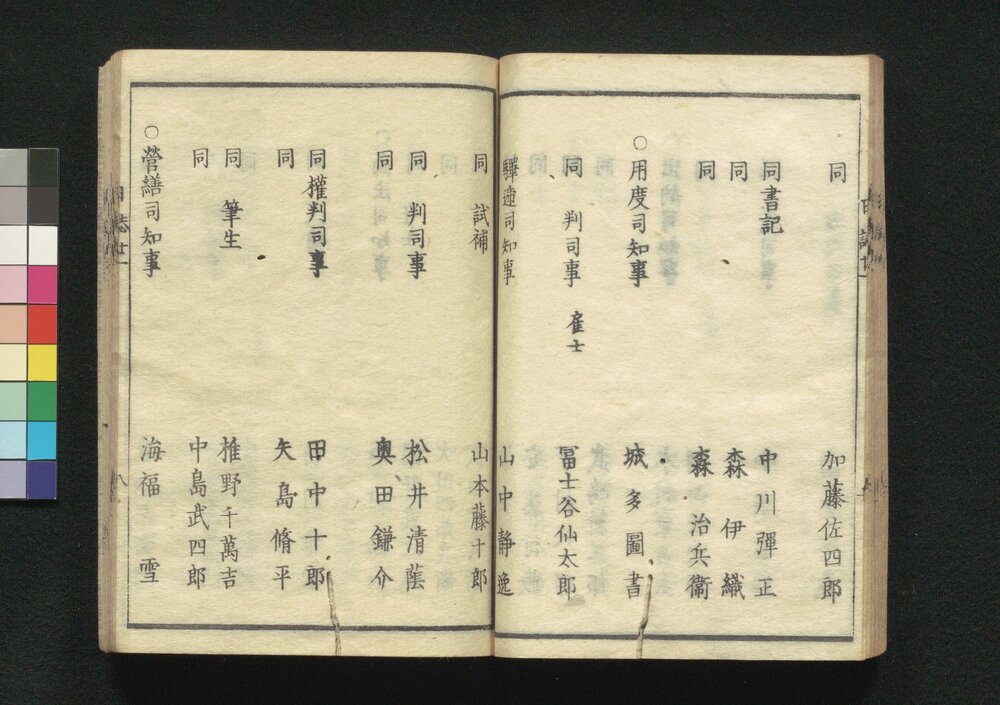 同 加藤佐四郎
同書記 中川彈正
同 森伊織
同 森治兵衞
○用度司知事 城多圖書
同 判司事 雇士 冨士谷仙太郎
驛遞司知事 山中靜逸
同 試補 山本藤十郎
同 判司事 松井清蔭
同 奥田鎌介
同權判司事 田中十郎
同 矢島脩平
同 筆生 椎野千萬吉
同 中島武四郎
○營繕司知事 海福雪